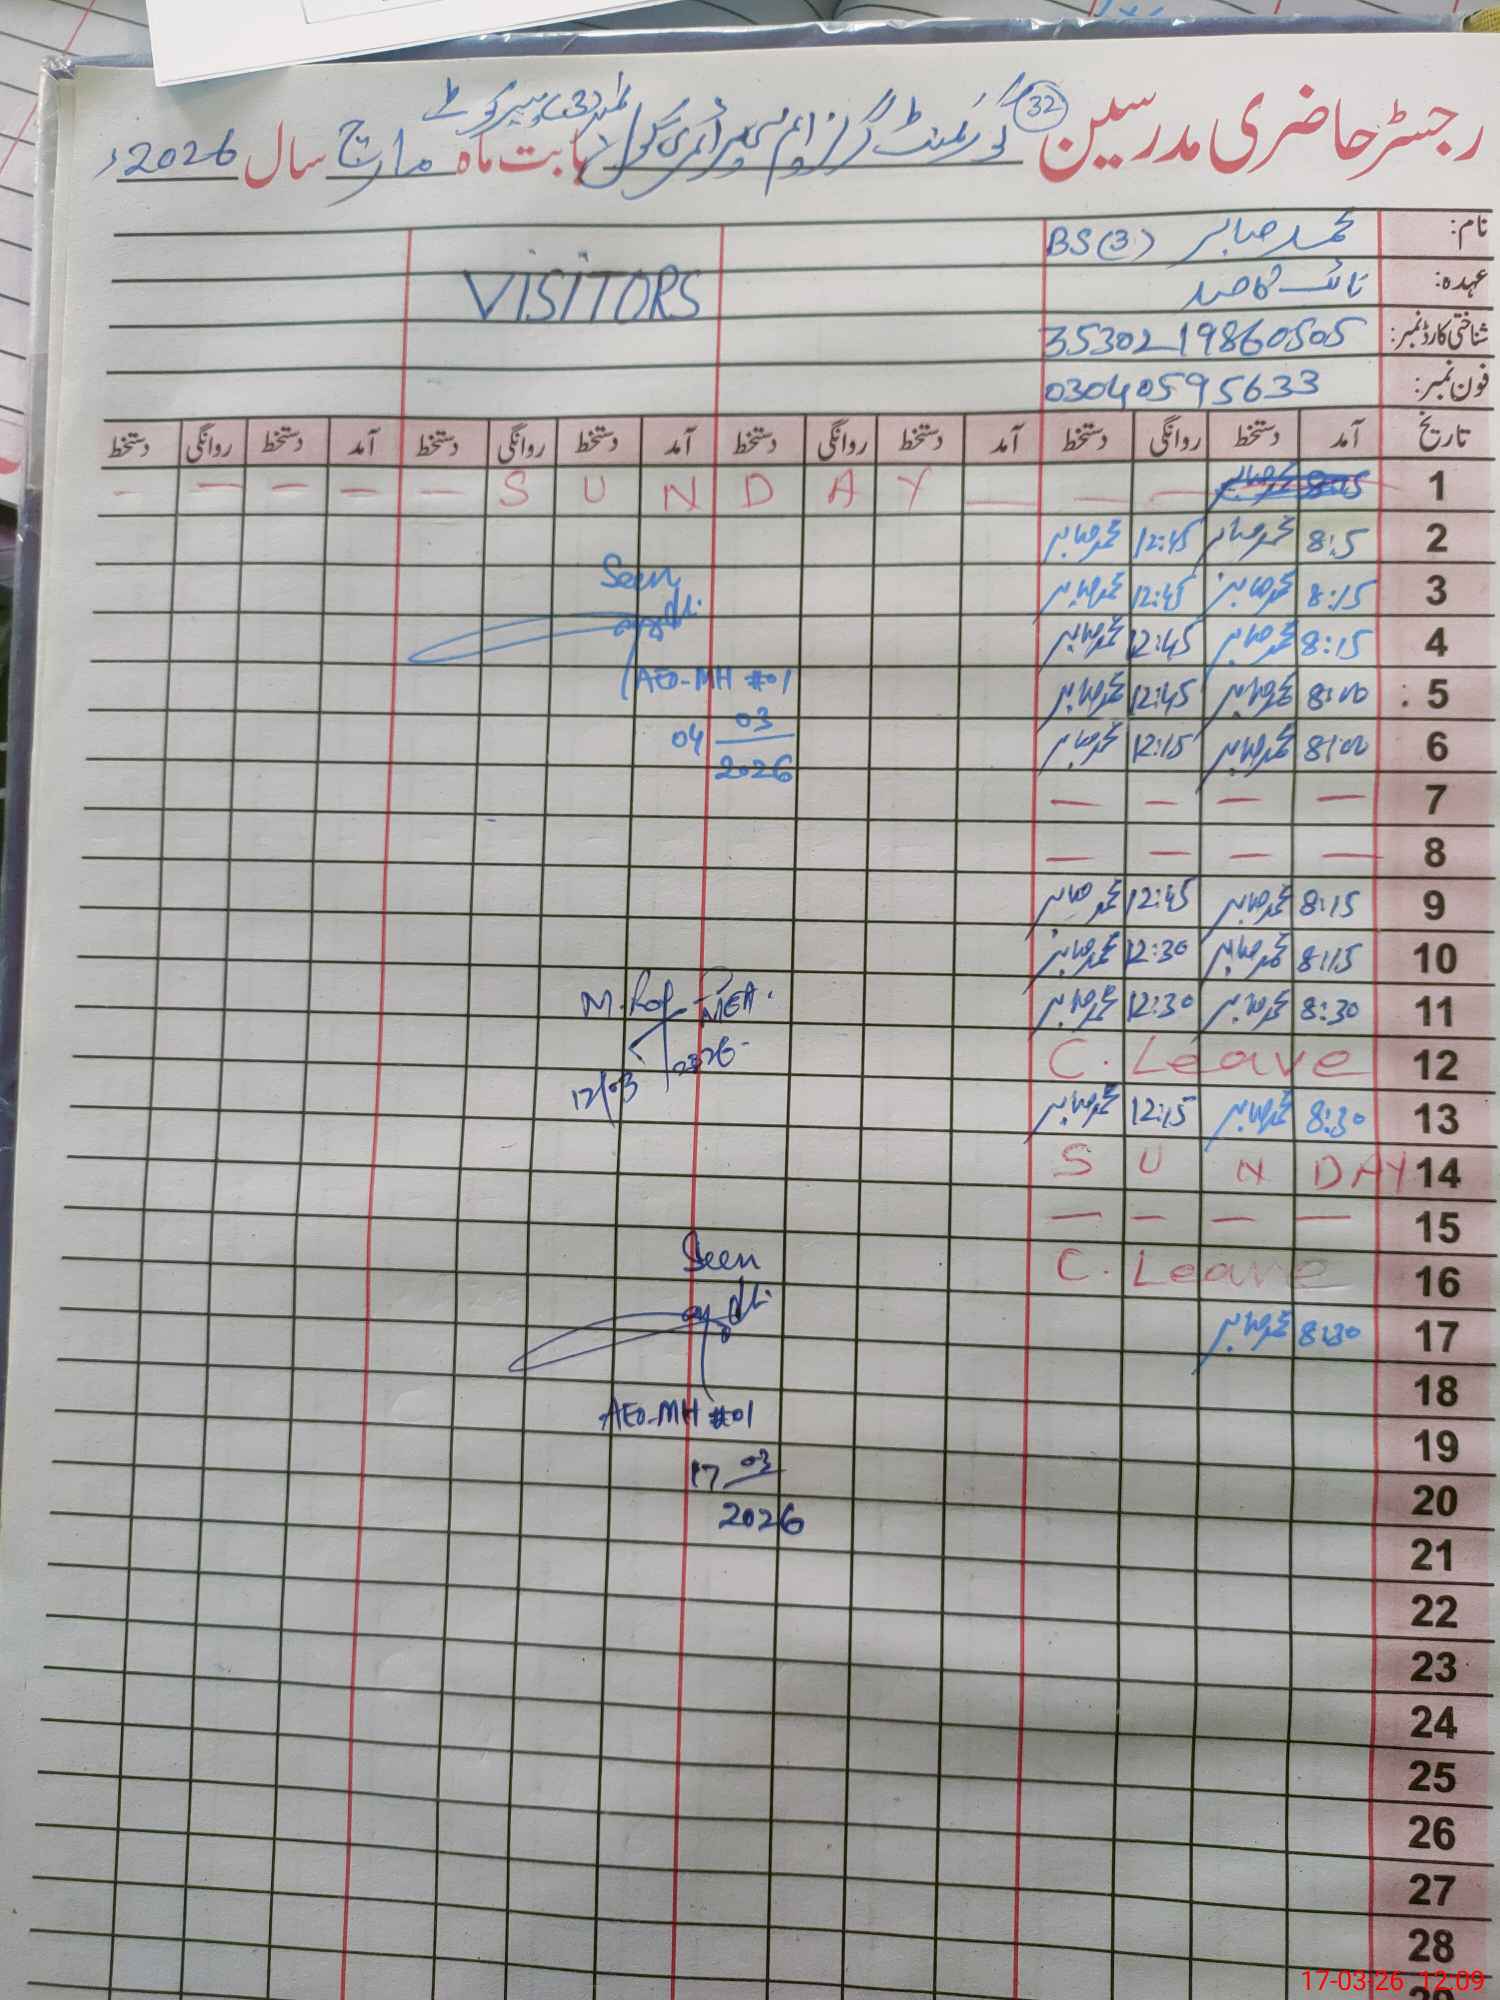 رجسٹر حاضری مدرسین (32) گورنمنٹ گرلز ایم سی پرائمری سکول بابت ماہ مارچ سال 2026ء
نام: محمد صابر BS(3)
عہدہ: نائب قاصد
VISITORS
شناختی کارڈ نمبر: 3530219860505
فون نمبر: 03040595633
تاریخ آمد دستخط روانگی دستخط آمد دستخط روانگی دستخط آمد دستخط روانگی دستخط آمد دستخط روانگی دستخط
1 — — — Y A D N U S — — — — —
2 8:5 محمد صابر 12:45 محمد صابر
3 8:15 محمد صابر 12:45 محمد صابر
4 8:15 محمد صابر 12:45 محمد صابر
5 8:00 محمد صابر 12:45 محمد صابر
6 8:00 محمد صابر 12:15 محمد صابر
7 — — — —
8 — — — —
9 8:15 محمد صابر 12:45 محمد صابر
10 8:15 محمد صابر 12:30 محمد صابر
11 8:30 محمد صابر 12:30 محمد صابر
12 C. Leave
13 8:30 محمد صابر 12:15 محمد صابر
14 SUNDAY
15 — — — —
16 C. Leave
17 8:30 محمد صابر
18
19
20
21
22
23
24
25
26
27
28
29
Seen
AEO-MH #01
04 03
2026
MEA.
12/03 2026
Seen
AEO-MH #01
17 03
2026
17-03-26 12:09